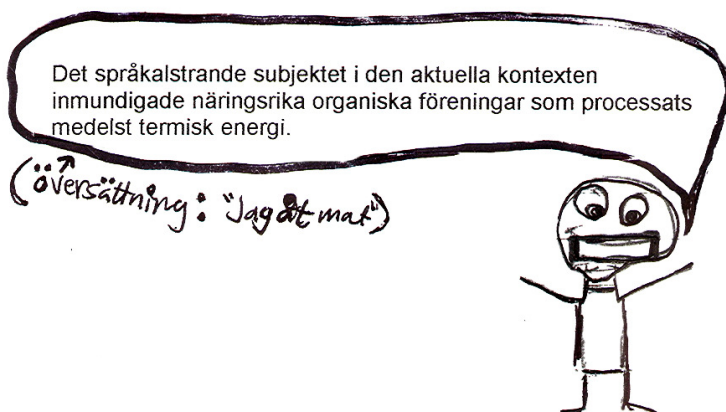 Det språkalstrande subjektet i den aktuella kontexten
inmundigade näringsrika organiska föreningar som processats
medelst termisk energi.
(översättning: "Jag åt mat")